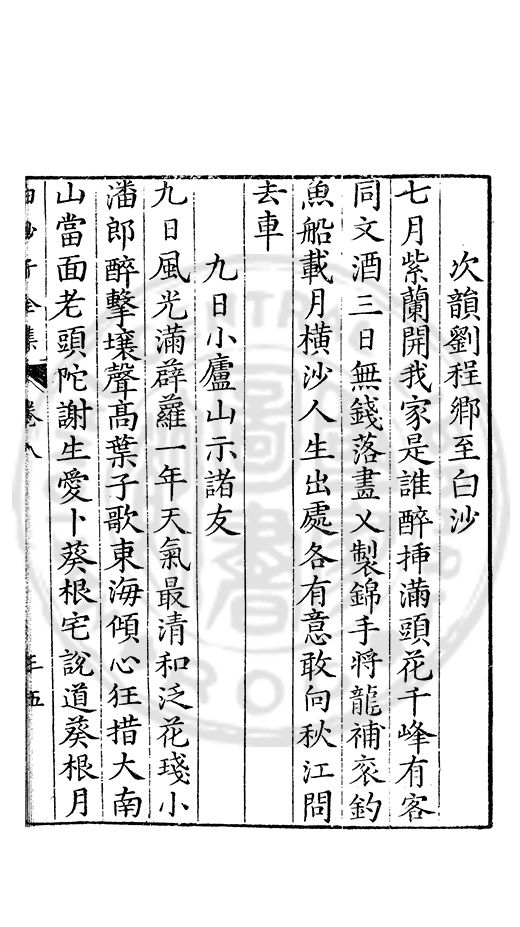 次韻劉程鄉至白沙
七月紫蘭開我家是誰醉揷滿頭花千峰有客
同文酒三日無錢落盡乂製錦手將龍補衮釣
魚船載月橫沙人生出處各有意敢向秋江問
去車
九日小廬山示諸友
九日風光滿薜蘿一年天氣最清和泛花琖小
潘郎醉擊壤聲髙葉子歌東海傾心狂措大南
山當面老頭陀謝生愛卜葵根宅說道葵根月
白沙子全集 卷八